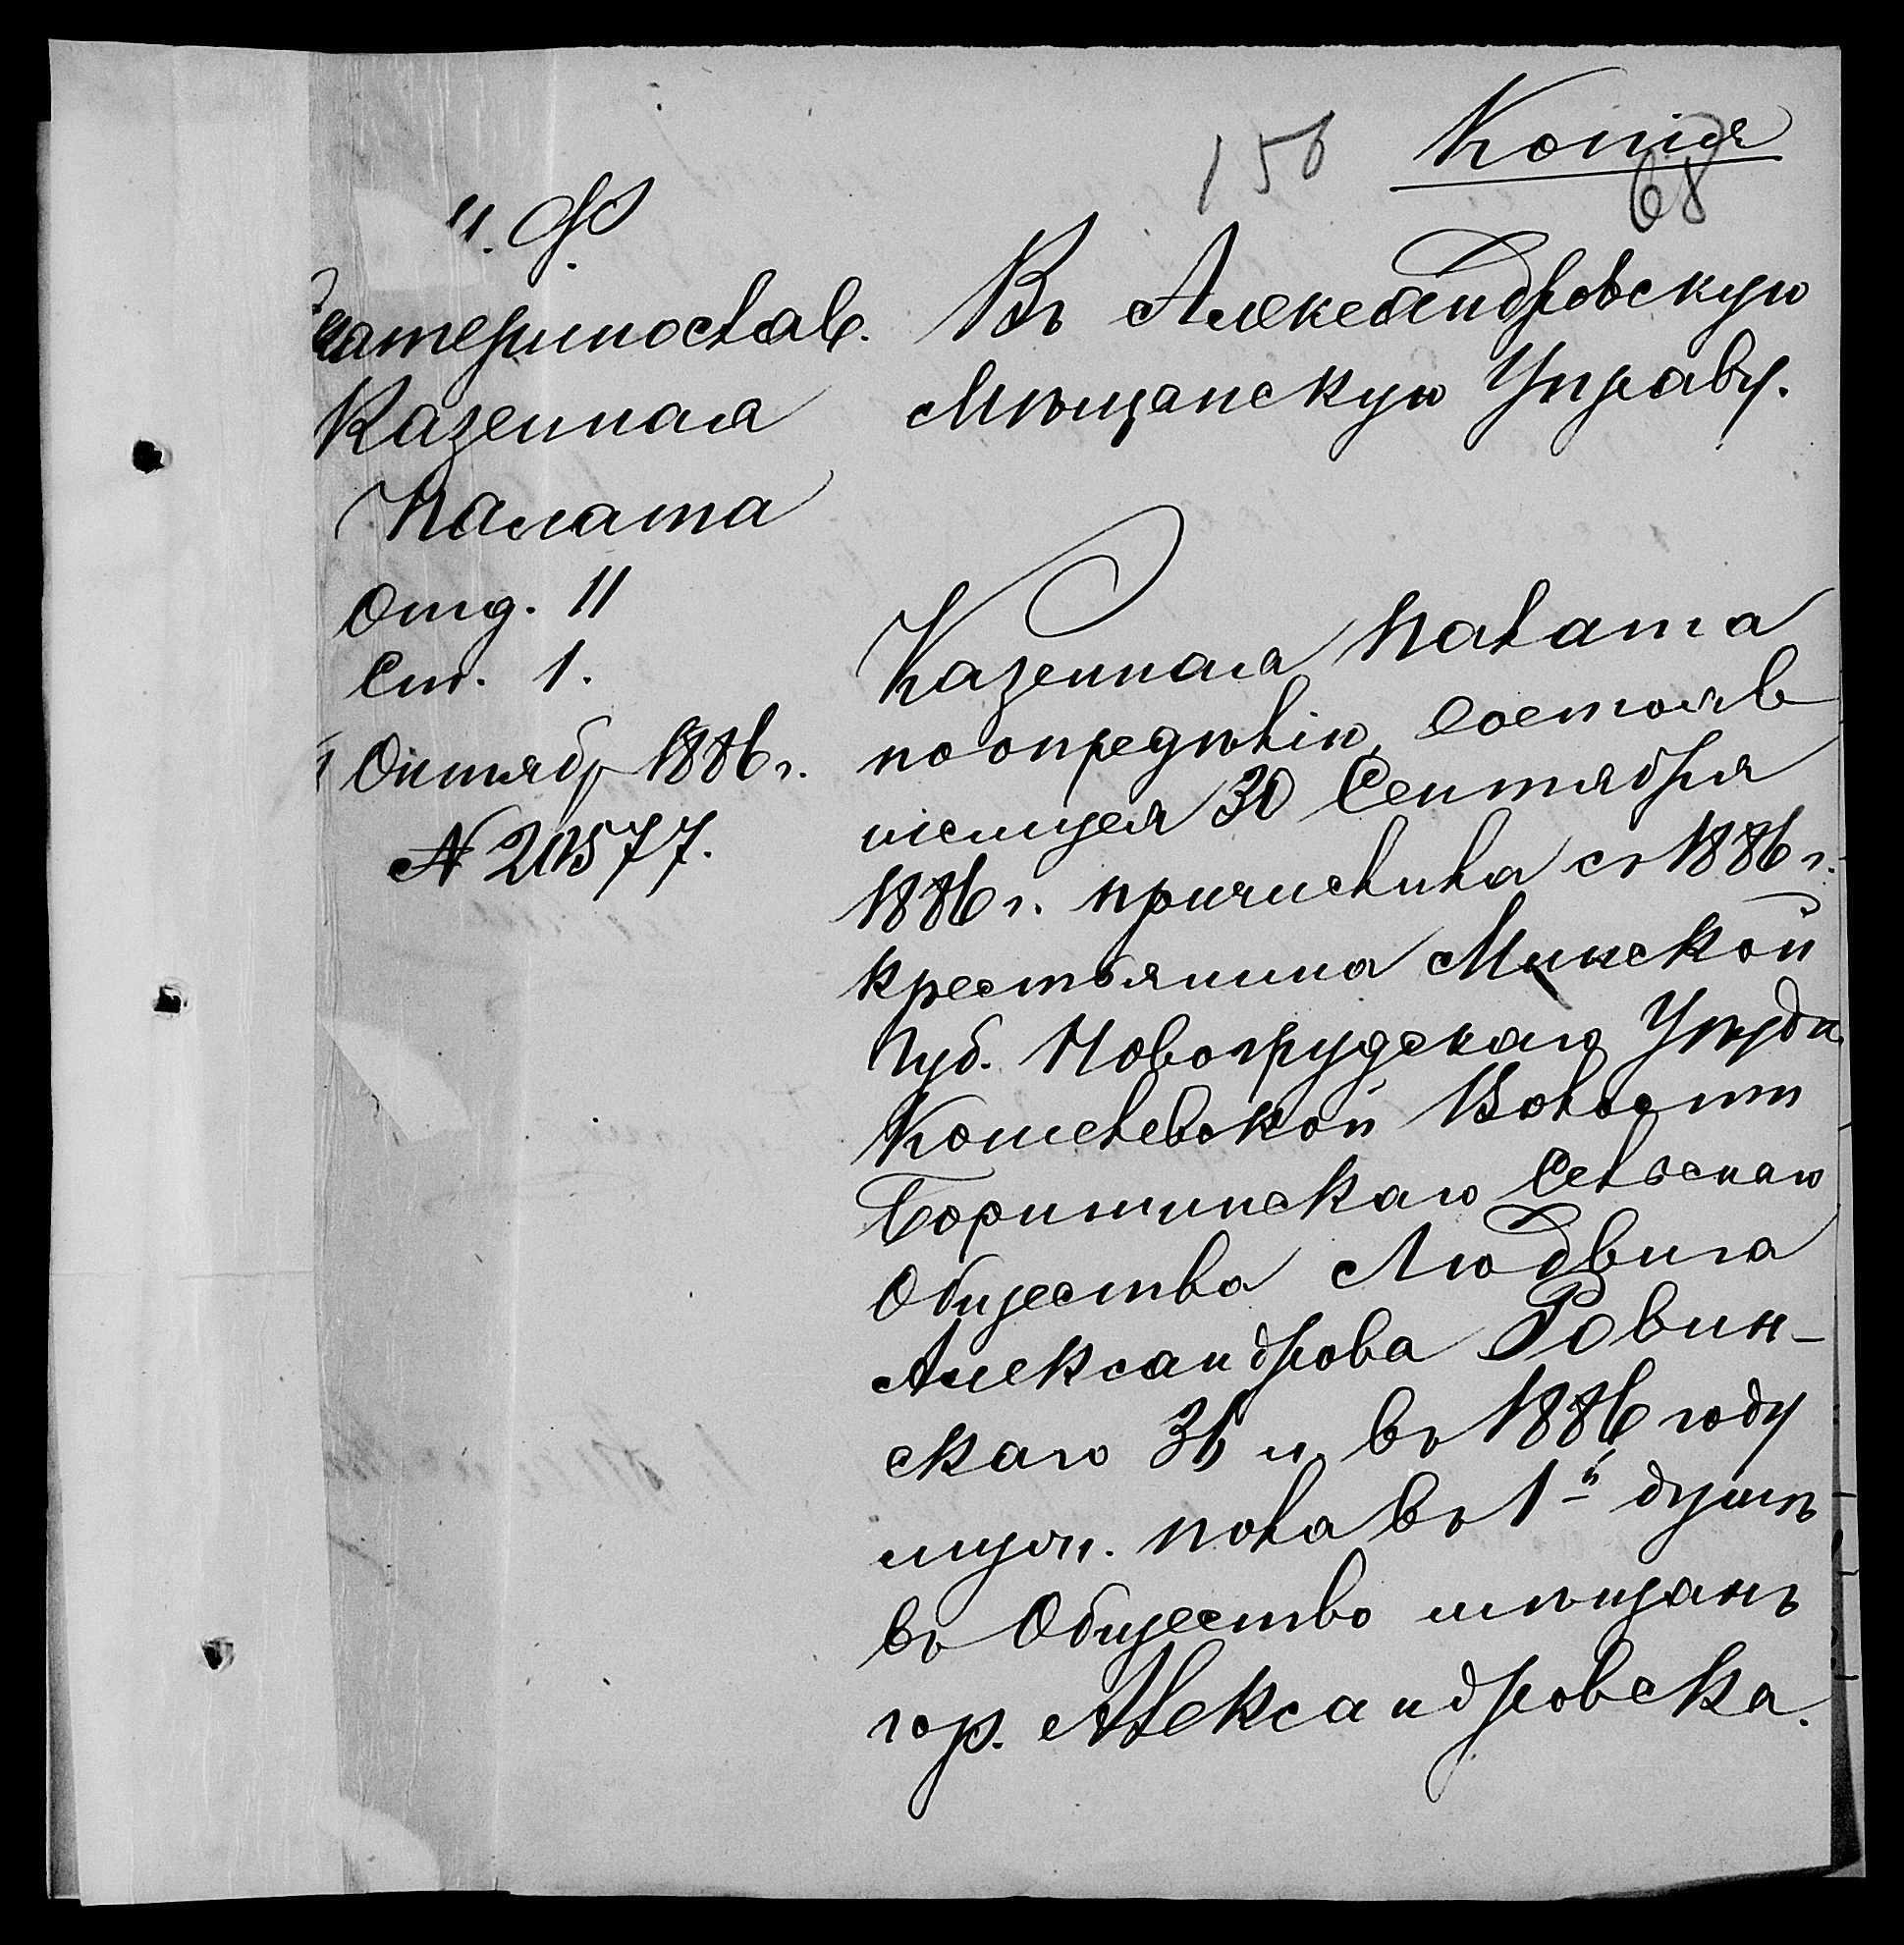 Копія
156
68
М. Ф.
Екатеринослав.
Казенная
Палата
Отд. II
Ст. 1.
Октябр 1886 г.
№ 20577.
Въ Александровскую
Мѣщанскую Управу.
Казенная Палата
по опредѣлѣнію, состояв
шемуся 30 Сентября
1886 г. причислила съ 1886 г.
крестьянина Минской
Губ. Новогрудскаго Уѣзда
Кошелевской Волости
Боришинскаго Сельскаго
Общества Людвига
Александрова Ровин-
скаго въ 1886 году
муж. пола въ 1й душѣ
въ Общество мѣщанъ
гор. Александровска.